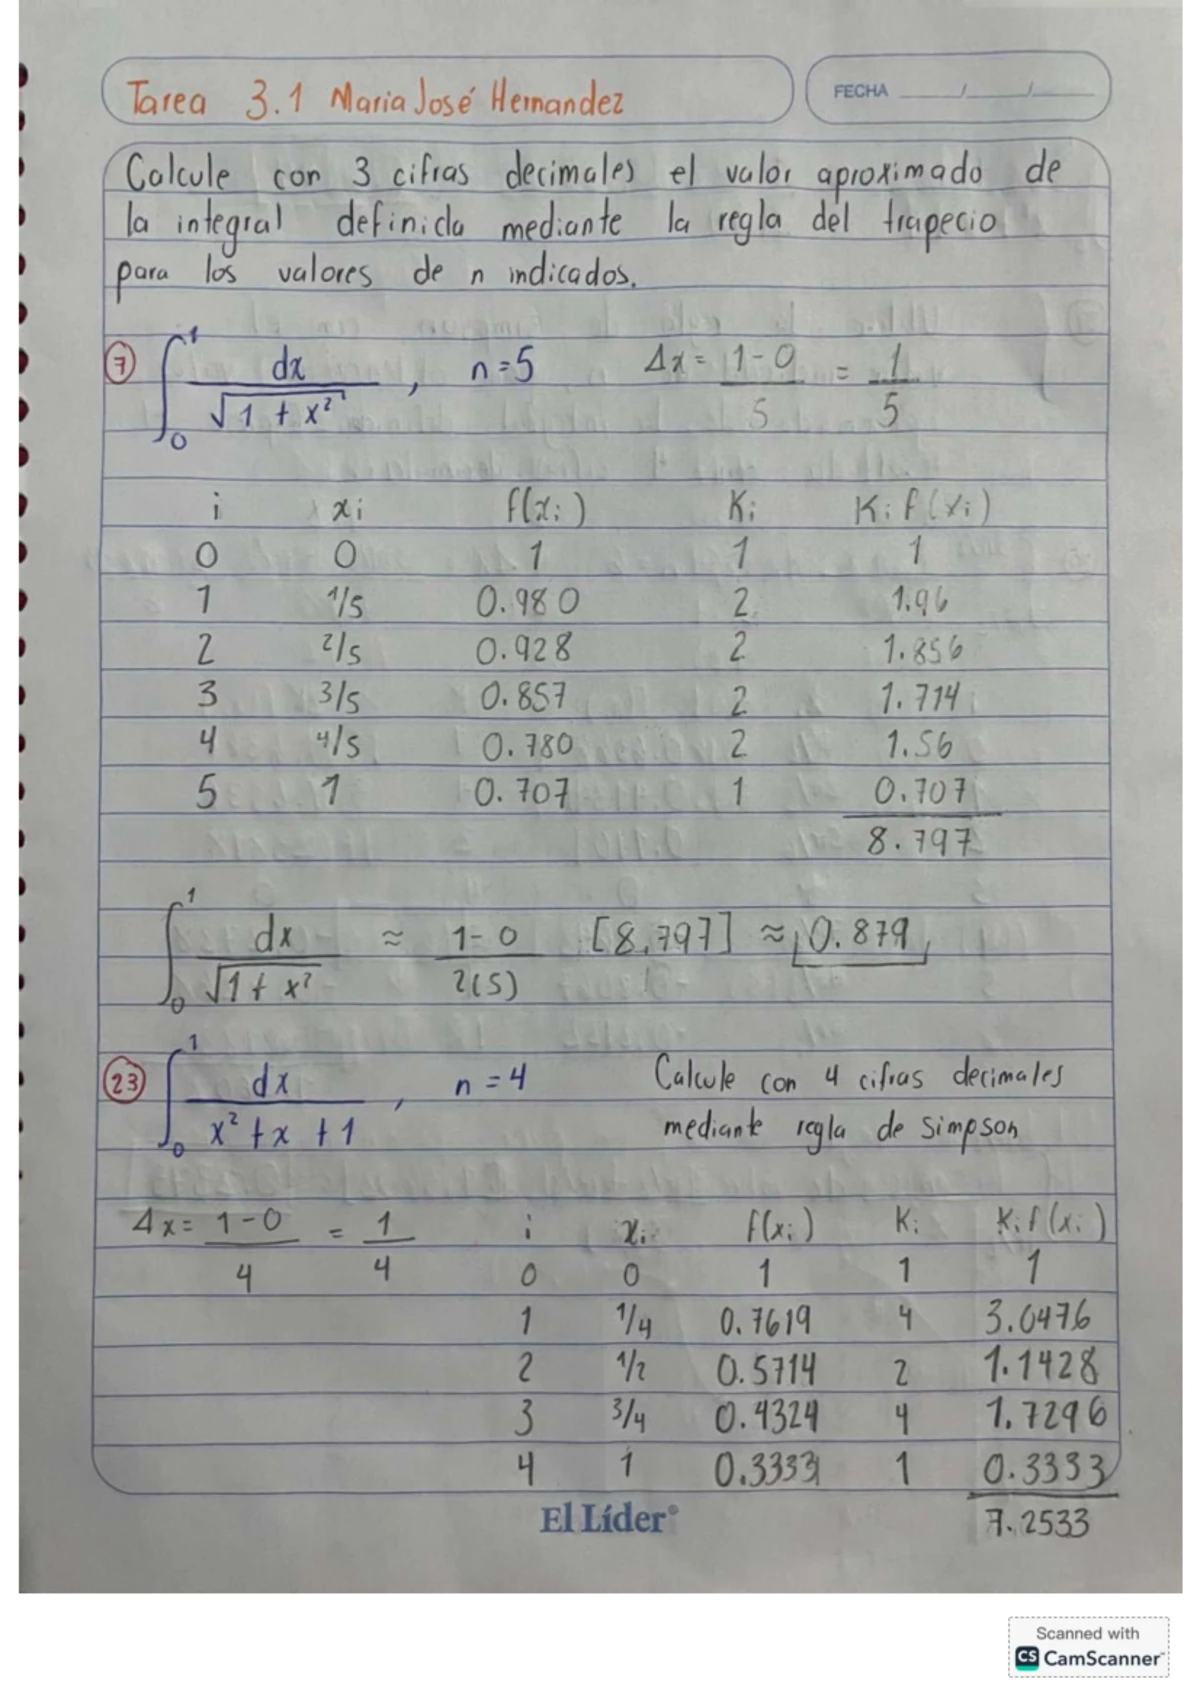 Tarea 3.1 Maria José Hernandez
FECHA ____/____/____
Calcule con 3 cifras decimales el valor aproximado de
la integral definida mediante la regla del trapecio
para los valores de n indicados.
7 ∫₀¹ dx / √(1 + x²) , n=5 Δx = (1-0)/5 = 1/5
i xi f(xi) Ki Ki f(xi)
0 0 1 1 1
1 1/5 0.980 2 1.96
2 2/5 0.928 2 1.856
3 3/5 0.857 2 1.714
4 4/5 0.780 2 1.56
5 1 0.707 1 0.707
8.797
∫₀¹ dx / √(1 + x²) ≈ (1-0)/2(5) [8.797] ≈ 0.879
23 ∫₀¹ dx / (x² + x + 1) , n=4 Calcule con 4 cifras decimales
mediante regla de simpson
Δx = (1-0)/4 = 1/4
i xi f(xi) Ki Ki f(xi)
0 0 1 1 1
1 1/4 0.7619 4 3.0476
2 1/2 0.5714 2 1.1428
3 3/4 0.4324 4 1.7296
4 1 0.3333 1 0.3333
7.2533
El Líder®
Scanned with
CS CamScanner